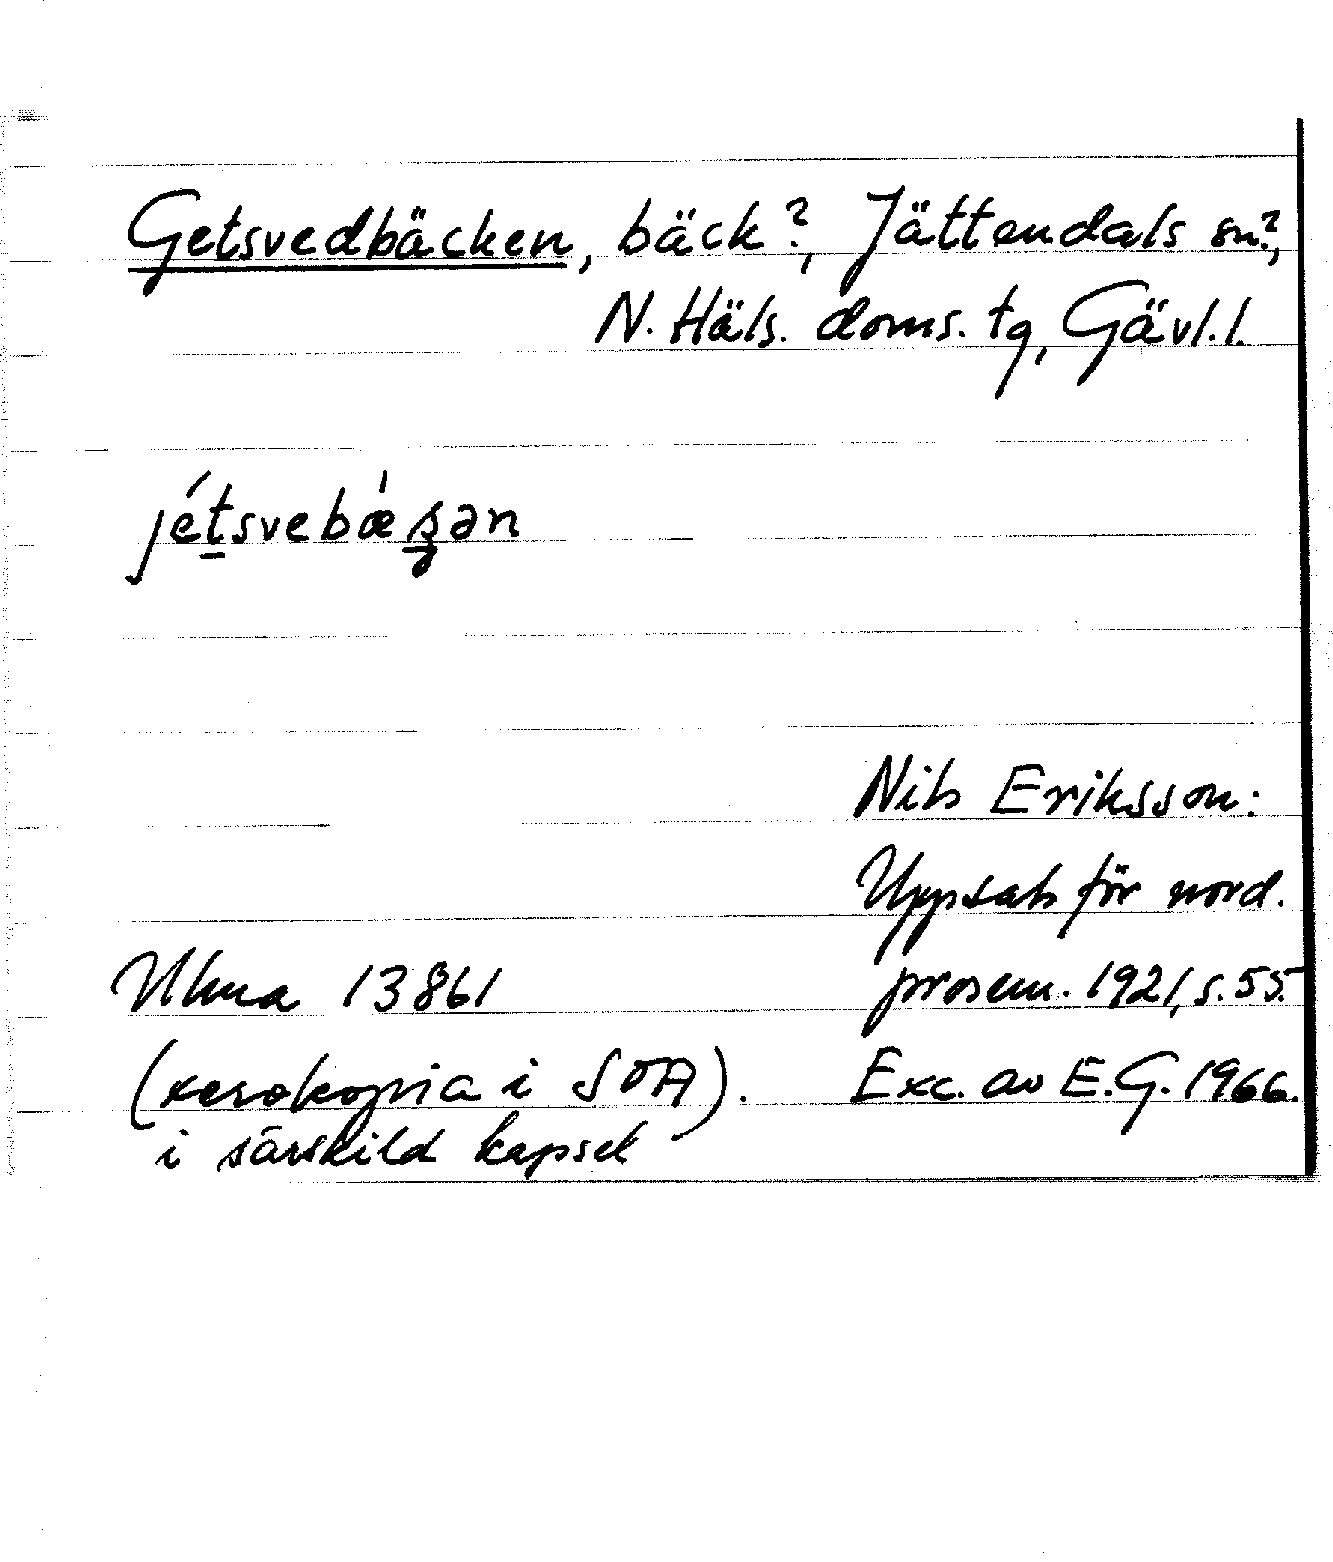 Getsvedbäcken, bäck?, Jättendals sn?,
N. Häls. doms. tg, Gävl.l.
jétsvebǽʂən
Nils Eriksson:
Uppsats för nord.
Ulma 13861 prosem. 1921, s. 55.
(xerokopia i SOA). Exc. av E.G. 1966.
i särskild kapsel